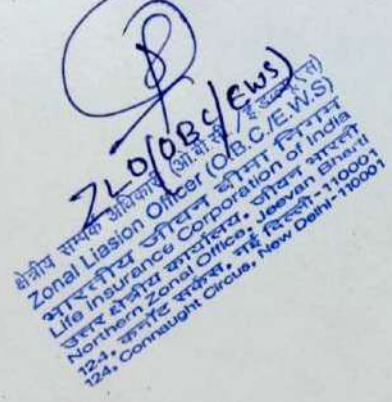 ZLO/OBC/EWS)
क्षेत्रीय सम्पर्क अधिकारी (ओ.बी.सी./ई.डब्ल्यू.एस)
Zonal Liasion Officer (O.B.C./E.W.S)
भारतीय जीवन बीमा निगम
Life Insurance Corporation of India
उत्तर क्षेत्रीय कार्यालय, जीवन भारती
Northern Zonal Office, Jeevan Bharti
124, कनॉट सर्कस, नई दिल्ली-110001
124, Connaught Circus, New Delhi-110001